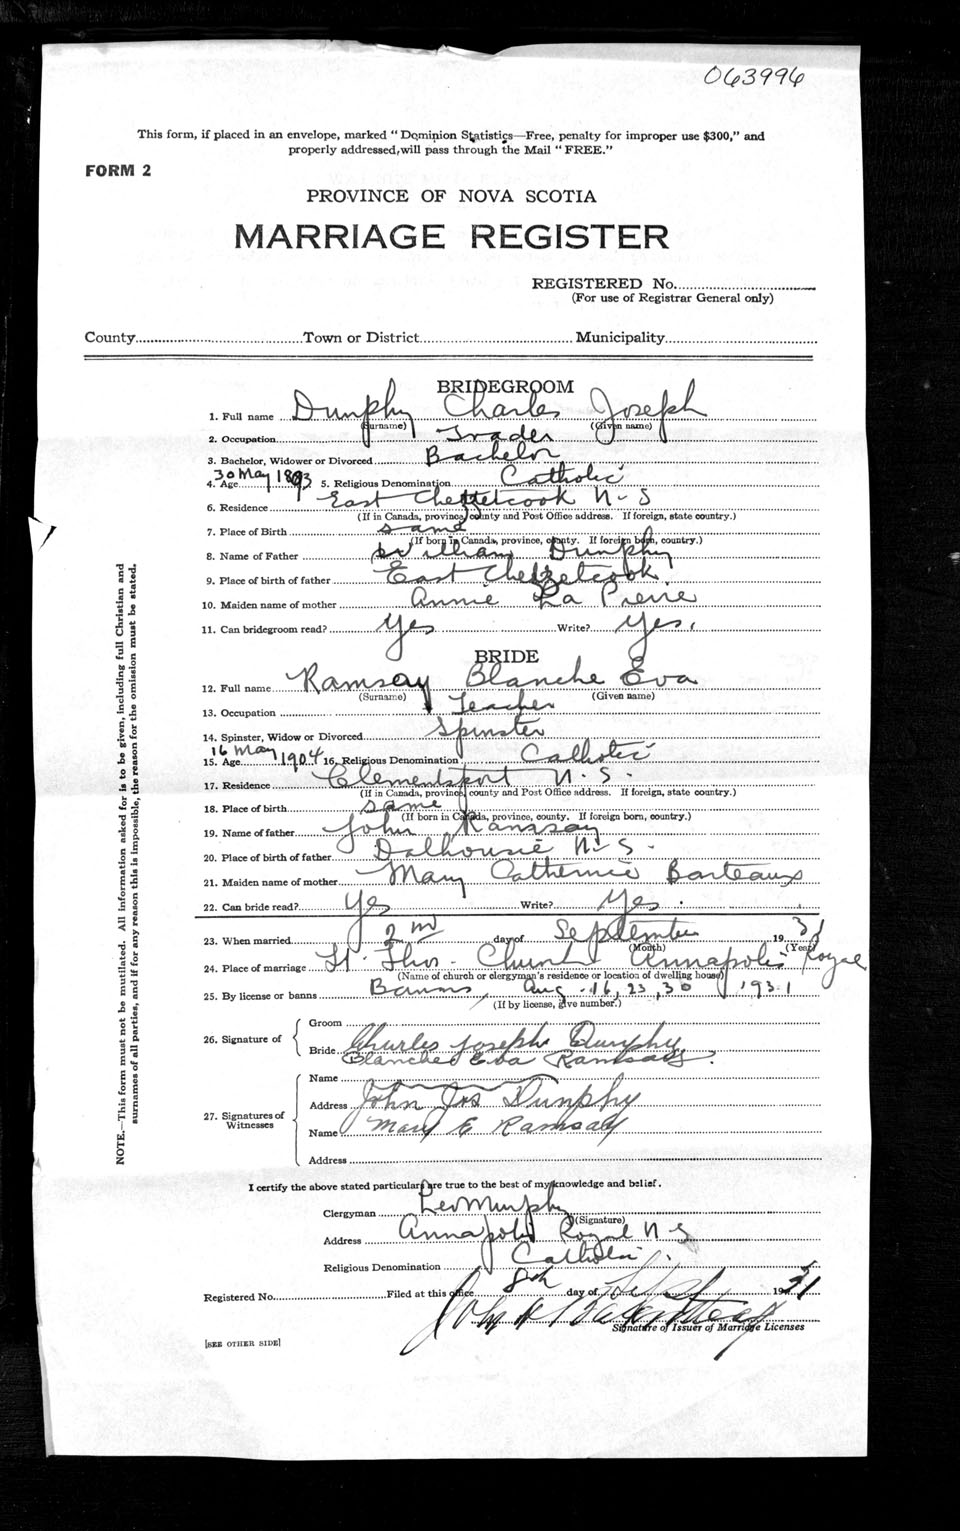 063994
This form, if placed in an envelope, marked "Dominion Statistics—Free, penalty for improper use $300," and
properly addressed, will pass through the Mail "FREE."
FORM 2
PROVINCE OF NOVA SCOTIA
MARRIAGE REGISTER
REGISTERED No.
(For use of Registrar General only)
County Town or District Municipality
BRIDEGROOM
1. Full name Dunphy Charles Joseph
(Surname) (Given name)
2. Occupation Trader
3. Bachelor, Widower or Divorced Bachelor
4. Age 30 May 1893 5. Religious Denomination Catholic
6. Residence East Chezzetcook N-S
(If in Canada, province, county and Post Office address. If foreign, state country.)
7. Place of Birth same
(If born in Canada, province, county. If foreign born, country.)
8. Name of Father William Dunphy
9. Place of birth of father East Chezzetcook.
10. Maiden name of mother Annie La Pierre
11. Can bridegroom read? Yes Write? Yes.
BRIDE
12. Full name Ramsay Blanche Eva
(Surname) (Given name)
13. Occupation Teacher
14. Spinster, Widow or Divorced Spinster
15. Age 16 May 1904 16. Religious Denomination Catholic
17. Residence Clementsport N.S.
(If in Canada, province, county and Post Office address. If foreign, state country.)
18. Place of birth same
(If born in Canada, province, county. If foreign born, country.)
19. Name of father John Ramsay
20. Place of birth of father Dalhousie N-S.
21. Maiden name of mother Mary Catherine Barteaux
22. Can bride read? Yes Write? Yes.
23. When married 2nd day of September 1931
(Month) (Year)
24. Place of marriage St. Thos. Church Annapolis Royal
(Name of church or clergyman's residence or location of dwelling house)
25. By license or banns Banns, Aug. 16, 23, 30 1931
(If by license, give number.)
26. Signature of
Groom
Bride Charles Joseph Dunphy
Blanche Eva Ramsay.
27. Signatures of Witnesses
Name
Address John Jos Dunphy
Name Mary E Ramsay
Address
I certify the above stated particulars are true to the best of my knowledge and belief.
Clergyman Leo Murphy
(Signature)
Address Annapolis Royal N S
Religious Denomination Catholic.
Registered No. Filed at this office 8th day of Sept 1931
John
Signature of Issuer of Marriage Licenses
[SEE OTHER SIDE]
NOTE.—This form must not be mutilated. All information asked for is to be given, including full Christian and
surnames of all parties, and if for any reason this is impossible, the reason for the omission must be stated.